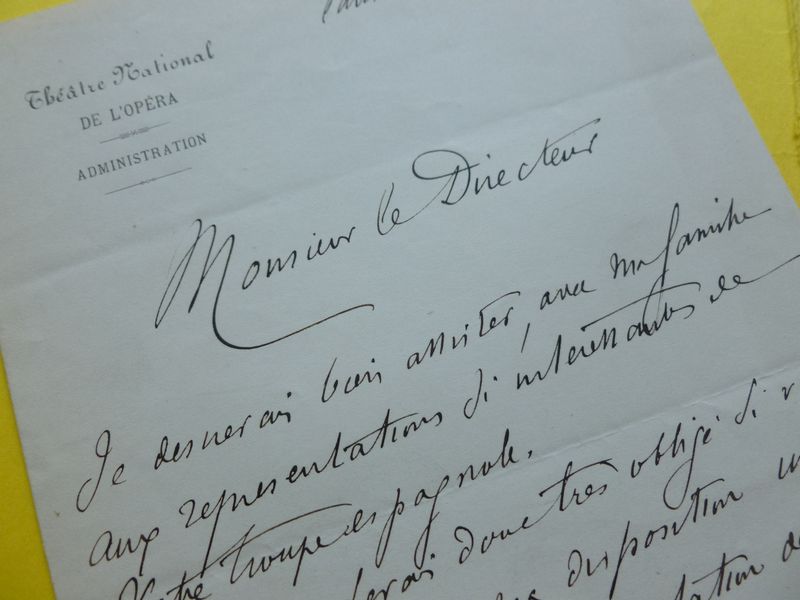 Théâtre National
DE L'OPÉRA
ADMINISTRATION
Monsieur le Directeur
Je desirerais bien assister, avec ma famille
aux representations si intéressantes de
Votre troupe espagnole.
donc très obligé si v
disposition un